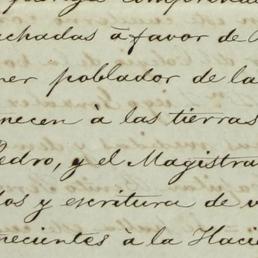 chadas á favor de
mer poblador de la
necen à las tierras
Pedro, y el Magistra
dos y escritura de v
necientes à la Haci